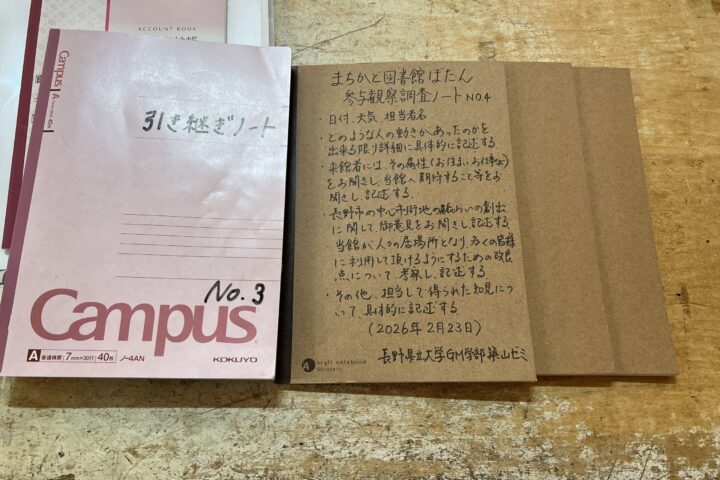 ACCOUNT BOOK
Campus
引き継ぎノート
No.3
Campus
A 普通横罫 7mm×30行 40枚 ノ-4AN
KOKUYO
まちかど図書館ぼたん
参与観察調査ノート NO.4
・日付、天気、担当者名
・どのような人の動きがあったのかを
出来る限り詳細に具体的に記述する
・来館者には、その属性(お住まい、お仕事など)
をお聞きし、当館へ期待すること等をお
聞きし、記述する。
・長野市の中心市街地の賑わいの創出
に関して、御意見をお聞きし記述する。
・当館が人々の居場所となり、多くの皆様
に利用して頂けるようにするための改良
点について、考察し、記述する。
・その他、担当して得られた知見につ
いて、具体的に記述する。
(2026年2月23日)
長野県立大学GM学部築山ゼミ
A kraft notebook